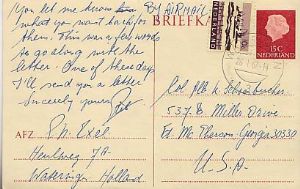 You let me know
what you want back for
them. This was a few words
to go along with the
letter. One of these days
I'll send you a letter
Sincerely yours,
BY AIRMAIL
BRIEFKA
NEDERLAND
15C
NEDERLAND
Col
537 B Miller Drive
Ft. Mc. Pherson Georgia 30330
U.S.A
AFZ
P.H. Exel
Heulweg 7A
Wateringen Holland